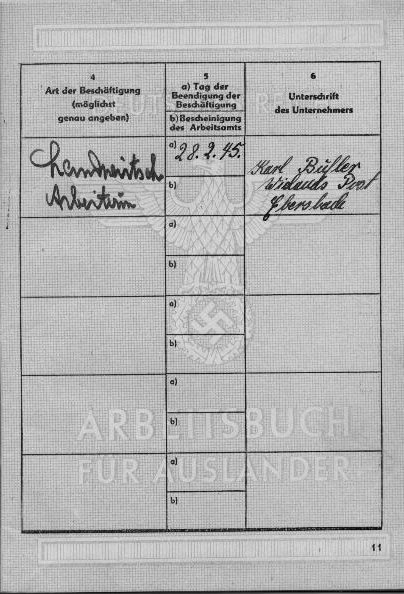 4
Art der Beschäftigung
(möglichst
genau angeben)
5
a) Tag der
Beendigung der
Beschäftigung
b) Bescheinigung
des Arbeitsamts
6
Unterschrift
des Unternehmers
Arbeiterin
a) 28.2.45.
b)
Karl
Post
Ebersbach
a)
b)
a)
b)
a)
b)
a)
b)
DEUTSCHES REICH
ARBEITSBUCH
FÜR AUSLÄNDER
11